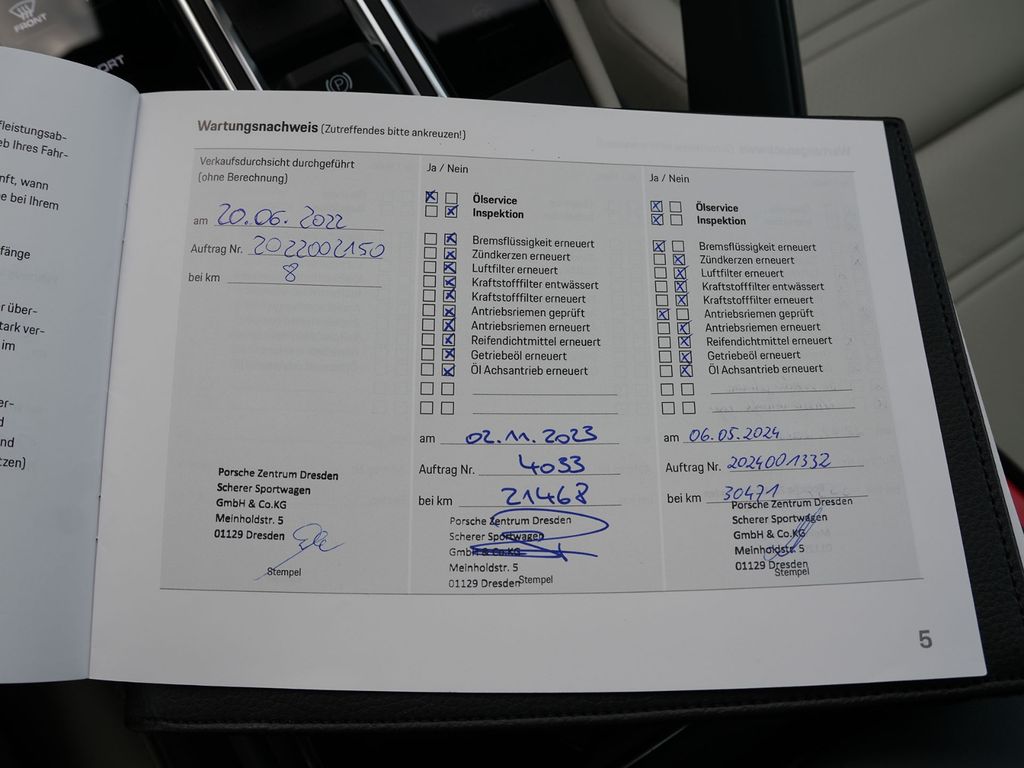 FRONT
ORT
fleistungsab-
eb Ihres Fahr-
nft, wann
e bei Ihrem
fänge
r über-
tark ver-
im
er-
d
nd
tzen)
Wartungsnachweis (Zutreffendes bitte ankreuzen!)
Verkaufsdurchsicht durchgeführt
(ohne Berechnung)
am 20.06.2022
Auftrag Nr. 2022002150
bei km 8
Porsche Zentrum Dresden
Scherer Sportwagen
GmbH & Co.KG
Meinholdstr. 5
01129 Dresden
Stempel
Ja / Nein
Ölservice
Inspektion
Bremsflüssigkeit erneuert
Zündkerzen erneuert
Luftfilter erneuert
Kraftstofffilter entwässert
Kraftstofffilter erneuert
Antriebsriemen geprüft
Antriebsriemen erneuert
Reifendichtmittel erneuert
Getriebeöl erneuert
Öl Achsantrieb erneuert
am 02.11.2023
Auftrag Nr. 4033
bei km 21468
Porsche Zentrum Dresden
Scherer Sportwagen
GmbH & Co.KG
Meinholdstr. 5
01129 Dresden
Stempel
Ja / Nein
Ölservice
Inspektion
Bremsflüssigkeit erneuert
Zündkerzen erneuert
Luftfilter erneuert
Kraftstofffilter entwässert
Kraftstofffilter erneuert
Antriebsriemen geprüft
Antriebsriemen erneuert
Reifendichtmittel erneuert
Getriebeöl erneuert
Öl Achsantrieb erneuert
am 06.05.2024
Auftrag Nr. 2024001332
bei km 30471
Porsche Zentrum Dresden
Scherer Sportwagen
GmbH & Co.KG
Meinholdstr. 5
01129 Dresden
Stempel
5